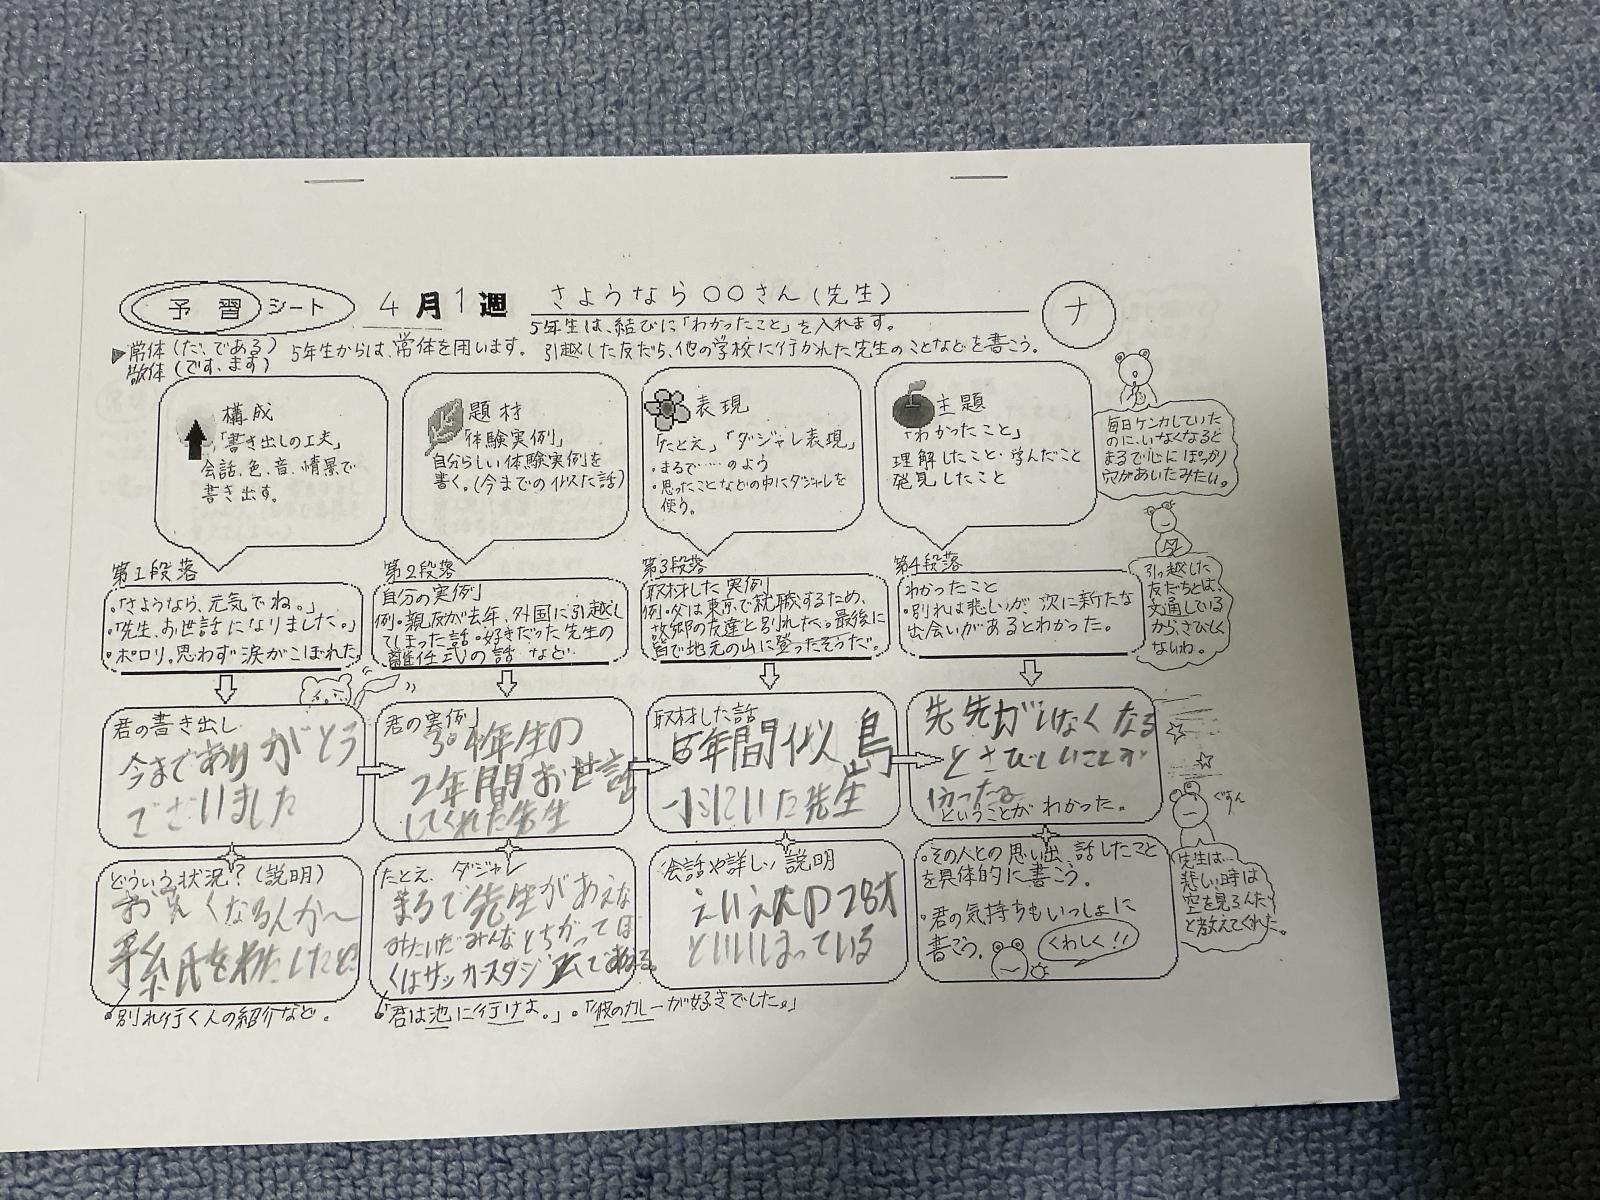 予習シート 4月1週 さようなら○○さん(先生) ナ
5年生は、結びに「わかったこと」を入れます。
▶常体(だ、である) 5年生からは、常体を用います。 引越した友だち、他の学校に行かれた先生のことなどを書こう。
敬体(です、ます)
構成
「書き出しの工夫」
会話、色、音、情景で
書き出す。
題材
「体験実例」
自分らしい体験実例を
書く。(今までの似た話)
表現
「たとえ」「ダジャレ表現」
・まるで……のよう
・思ったことなどの中にダジャレを
使う。
主題
「わかったこと」
理解したこと・学んだこと
発見したこと
毎日ケンカしていた
のに、いなくなると
まるで心にぽっかり
穴があいたみたい。
第1段落
・「さようなら、元気でね。」
・「先生、お世話になりました。」
・ポロリ。思わず涙がこぼれた
第2段落
自分の実例
例・親友が去年、外国に引越し
てしまった話・好きだった先生の
離任式の話 など
第3段落
取材した実例
例・父は東京で就職するため、
故郷の友達と別れた。最後に
皆で地元の山に登ったそうだ。
第4段落
わかったこと
・別れは悲しいが、次に新たな
出会いがあるとわかった。
引っ越した
友だちとは、
文通している
から、さびしく
ないわ。
君の書き出し
今までありがとう
ございました
君の実例
3o4年生の
2年間お世話
してくれた先生
取材した話
5年間似島
にいた先生
先先がいなくなる
とさびしいことが
ということがわかった。
ぐすん
どういう状況?(説明)
手紙をわたしたと
・別れ行く人の紹介など。
たとえ、ダジャレ
まるで先生があえな
みたいだみんなとちがってぼ
くはサッカースタジアムで
・「君は池に行けよ。」・「彼のカレーが好きでした。」
会話や詳しい説明
えいえんの28才
といいはっている
・その人との思い出、話したこと
を具体的に書こう。
・君の気持ちもいっしょに
書こう。
くわしく!!
先生は…
悲しい時は
空を見るんだ
と教えてくれた。